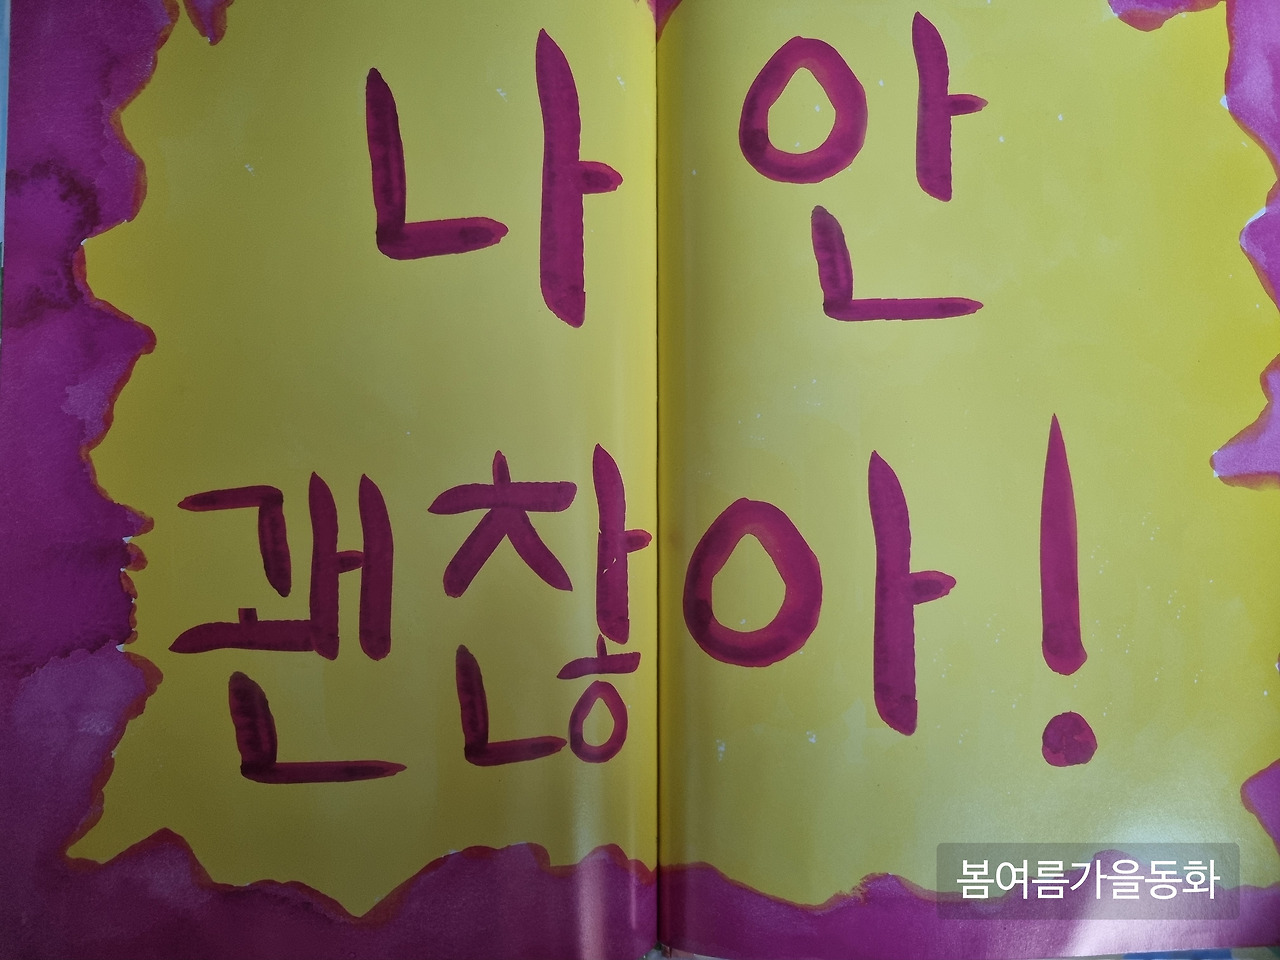 나 안
괜찮아!
봄여름가을동화